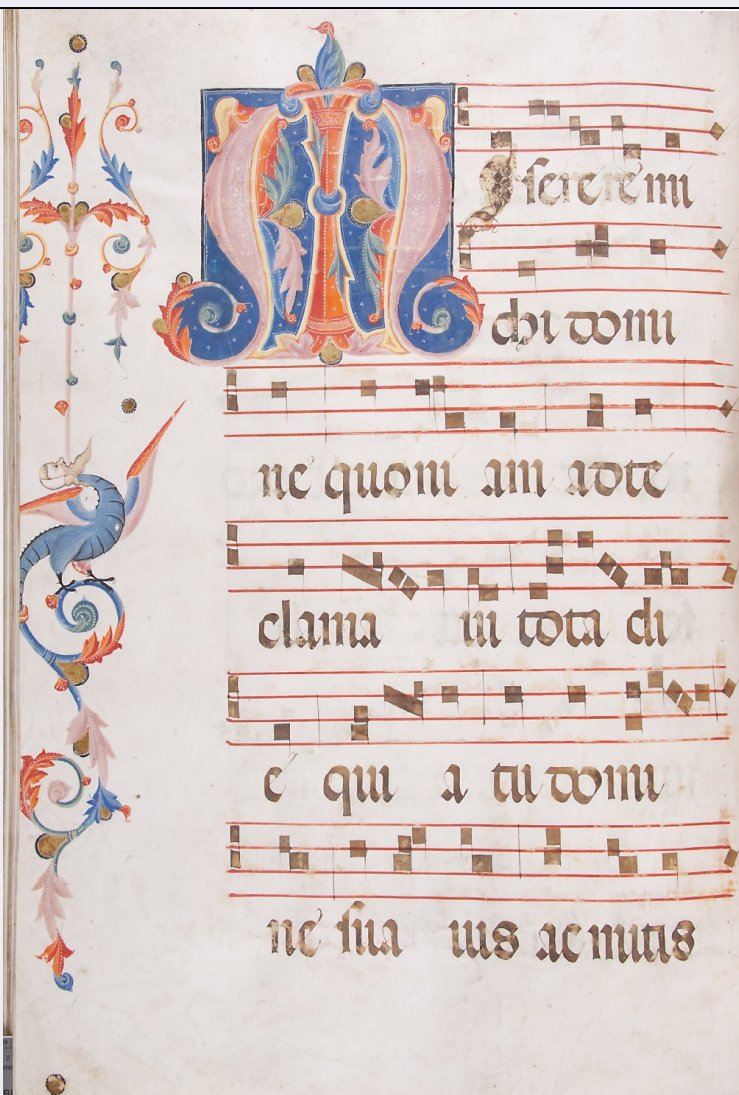 Miserere mi
chi domi
ne quoni am adte
clama ui tota di
e qui a tu domi
ne sua uis ac mitis